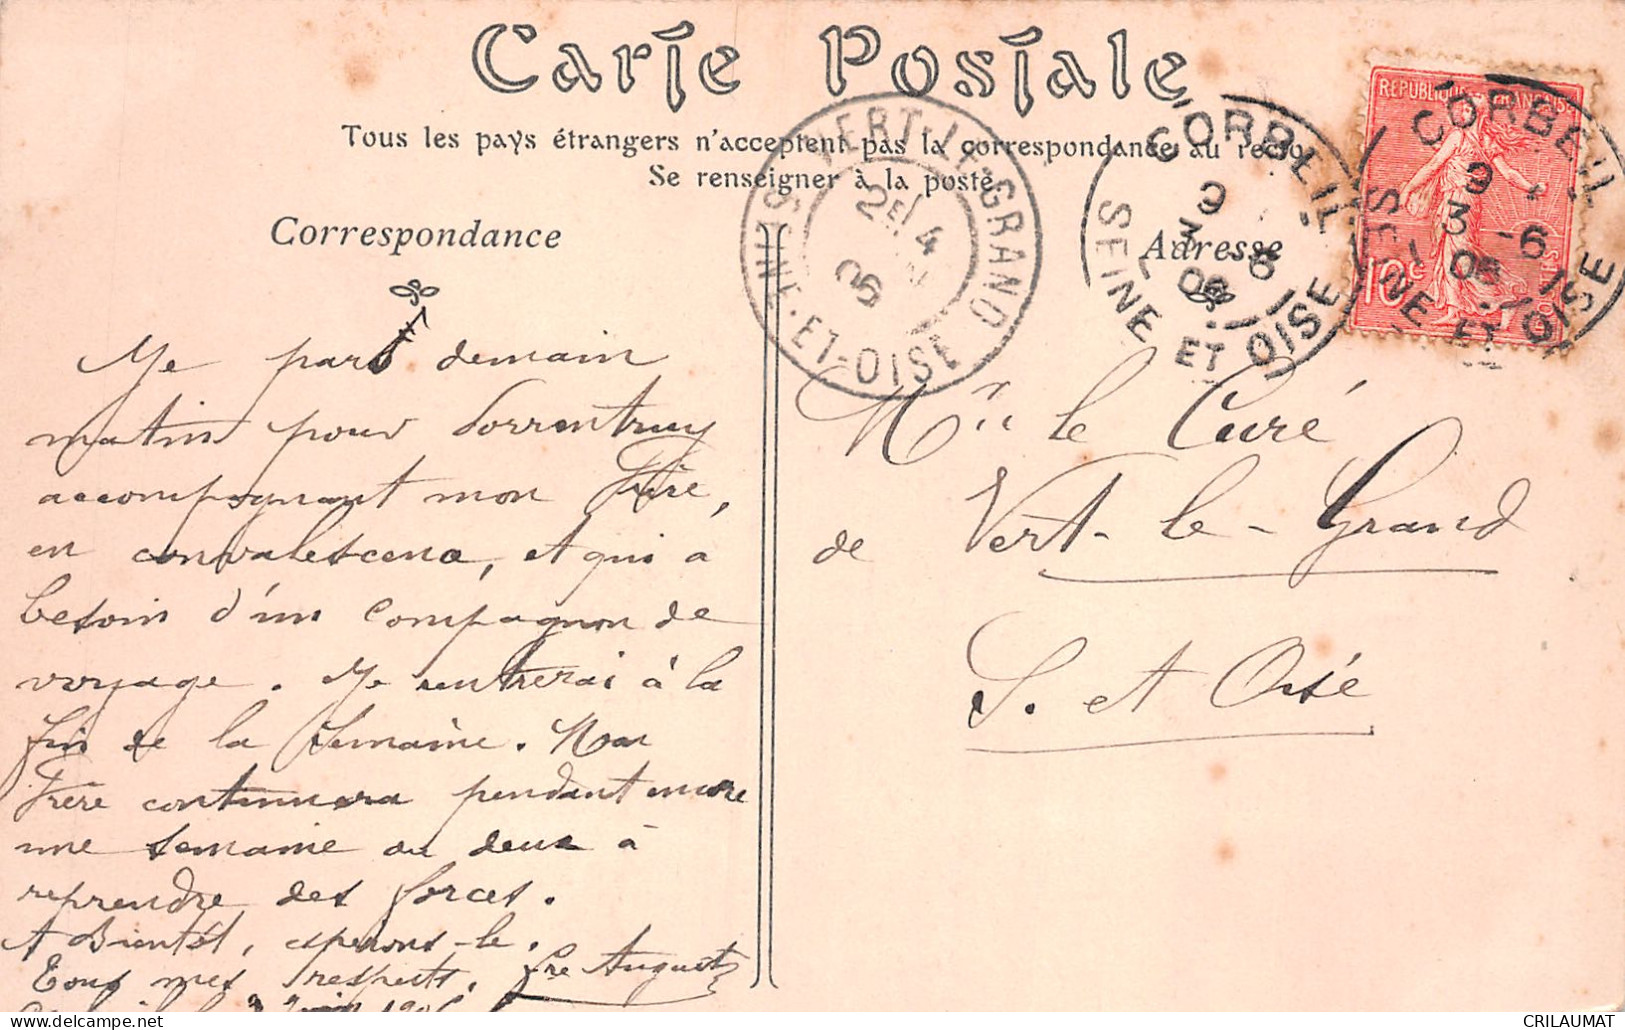 Carte Postale
Tous les pays étrangers n'acceptent pas la correspondance au recto
Se renseigner à la poste.
Correspondance
Adresse
Je pars demain
matin pour Porrentruy
accompagnant mon Frère,
en convalescence, et qui a
besoin d'un compagnon de
voyage. Je rentrerai à la
fin de la semaine. Mon
Frère continuera pendant encore
une semaine ou deux à
reprendre des forces.
A Bientôt, espérons-le.
Tous mes respects. Fre August
Juin 1905
Mr le Curé
de Vert-le-Grand
S. et Oise
VERT-LE-GRAND
SEINE-ET-OISE
2E
4
05
CORBEIL
SEINE ET OISE
9
3 -6
05
CORBEIL
SEINE ET OISE
9
3 -6
05
REPUBLIQUE FRANÇAISE
10c
POSTES
CRILAUMAT